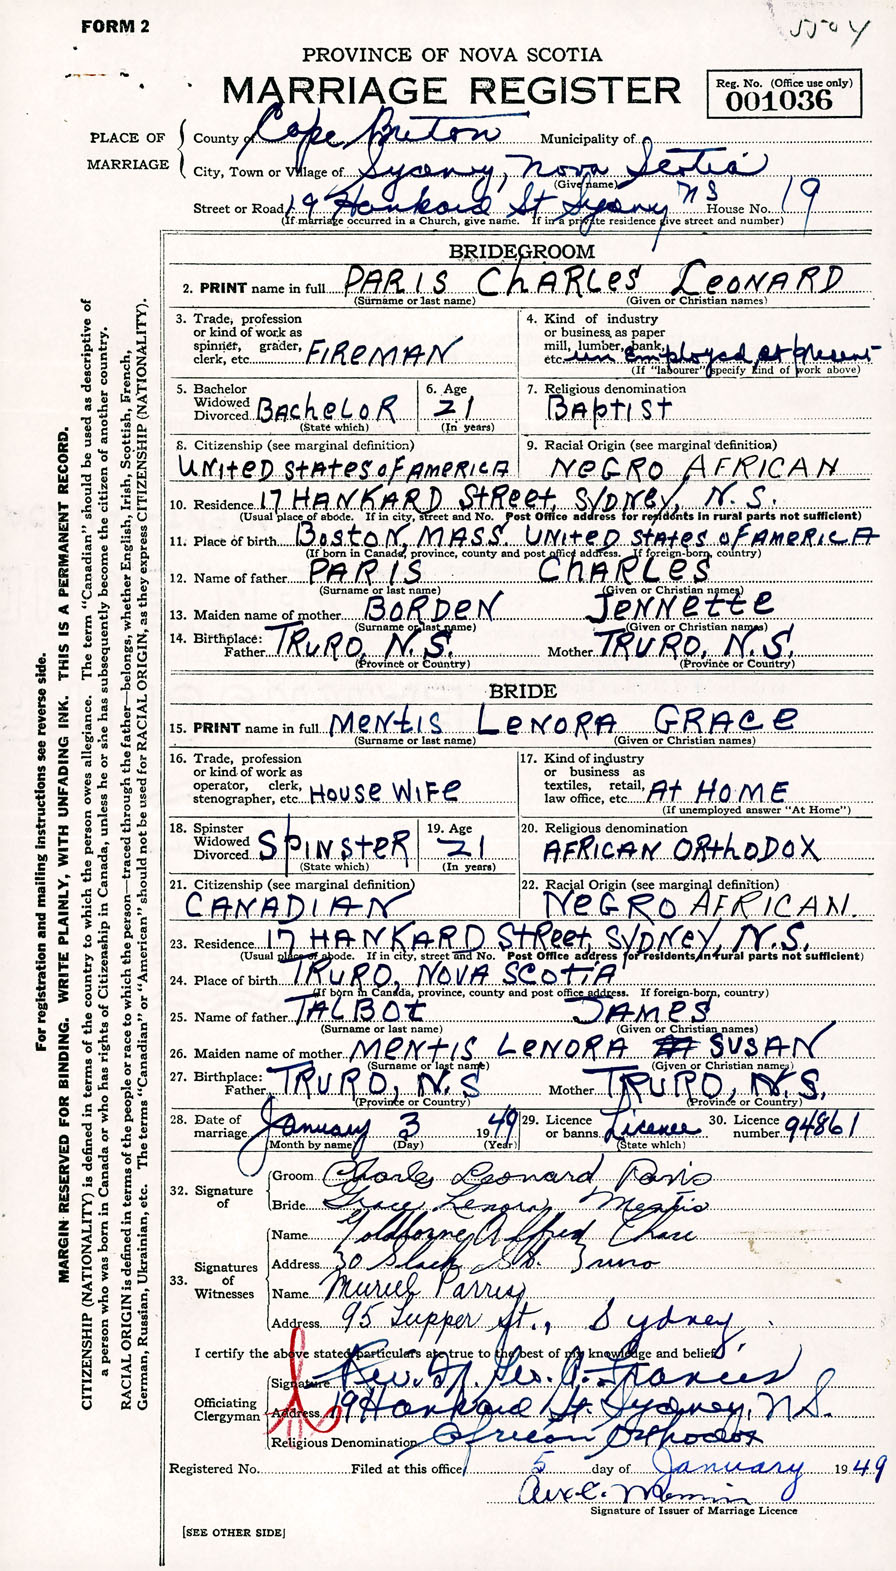 FORM 2
5504
PROVINCE OF NOVA SCOTIA
MARRIAGE REGISTER
Reg. No. (Office use only)
001036
PLACE OF MARRIAGE
County of Cape Breton Municipality of
City, Town or Village of Sydney, Nova Scotia
(Give name)
Street or Road 19 Hankard St Sydney NS House No. 19
(If marriage occurred in a Church, give name. If in a private residence give street and number)
BRIDEGROOM
2. PRINT name in full PARIS CHARLES LEONARD
(Surname or last name) (Given or Christian names)
3. Trade, profession or kind of work as spinner, grader, clerk, etc. FIREMAN
4. Kind of industry or business, as paper mill, lumber, bank, etc. un Employed, at present
(If "labourer" specify kind of work above)
5. Bachelor Widowed Divorced BACHELOR
(State which)
6. Age 21
(In years)
7. Religious denomination BAptist
8. Citizenship (see marginal definition)
UNITED STATES OF AMERICA
9. Racial Origin (see marginal definition)
NEGRO AFRICAN
10. Residence 17 HANKARD STREET, SYDNEY, N.S.
(Usual place of abode. If in city, street and No. Post Office address for residents in rural parts not sufficient)
11. Place of birth BOSTON, MASS. UNITED STATES OF AMERICA
(If born in Canada, province, county and post office address. If foreign-born, country)
12. Name of father PARIS CHARLES
(Surname or last name) (Given or Christian names)
13. Maiden name of mother BORDEN JENNETTE
(Surname or last name) (Given or Christian names)
14. Birthplace: Father TRURO, N.S. Mother TRURO, N.S.
(Province or Country) (Province or Country)
BRIDE
15. PRINT name in full MENTIS LENORA GRACE
(Surname or last name) (Given or Christian names)
16. Trade, profession or kind of work as operator, clerk, stenographer, etc. HOUSE WIFE
17. Kind of industry or business as textiles, retail, law office, etc. At HOME
(If unemployed answer "At Home")
18. Spinster Widowed Divorced SPINSTER
(State which)
19. Age 21
(In years)
20. Religious denomination
AFRICAN ORTHODOX
21. Citizenship (see marginal definition)
CANADIAN
22. Racial Origin (see marginal definition)
NEGRO AFRICAN.
23. Residence 17 HANKARD STREET, SYDNEY, N.S.
(Usual place of abode. If in city, street and No. Post Office address for residents in rural parts not sufficient)
24. Place of birth TRURO, NOVA SCOTIA
(If born in Canada, province, county and post office address. If foreign-born, country)
25. Name of father TALBOT JAMES
(Surname or last name) (Given or Christian names)
26. Maiden name of mother MENTIS LENORA SUSAN
(Surname or last name) (Given or Christian names)
27. Birthplace: Father TRURO, N.S Mother TRURO, N.S.
(Province or Country) (Province or Country)
28. Date of marriage January 3 1949
(Month by name) (Day) (Year)
29. Licence or banns Licence
(State which)
30. Licence number 94861
32. Signature of
Groom Charles Leonard Paris
Bride Grace Lenora Mentis
33. Signatures of Witnesses
Name Goldbourne Alfred Chase
Address 30 Slack St. Truro
Name Muriel Parris
Address 95 Tupper St., Sydney.
I certify the above stated particulars are true to the best of my knowledge and belief.
Officiating Clergyman
Signature Rev. Geo. A. Francis
Address 19 Hankard St. Sydney, N.S.
Religious Denomination African Orthodox
Registered No. Filed at this office 5 day of January 1949
Signature of Issuer of Marriage Licence
[SEE OTHER SIDE]
For registration and mailing instructions see reverse side.
MARGIN RESERVED FOR BINDING. WRITE PLAINLY, WITH UNFADING INK. THIS IS A PERMANENT RECORD.
CITIZENSHIP (NATIONALITY) is defined in terms of the country to which the person owes allegiance. The term "Canadian" should be used as descriptive of
a person who was born in Canada or who has rights of Citizenship in Canada, unless he or she has subsequently become the citizen of another country.
RACIAL ORIGIN is defined in terms of the people or race to which the person—traced through the father—belongs, whether English, Irish, Scottish, French,
German, Russian, Ukrainian, etc. The terms "Canadian" or "American" should not be used for RACIAL ORIGIN, as they express CITIZENSHIP (NATIONALITY).